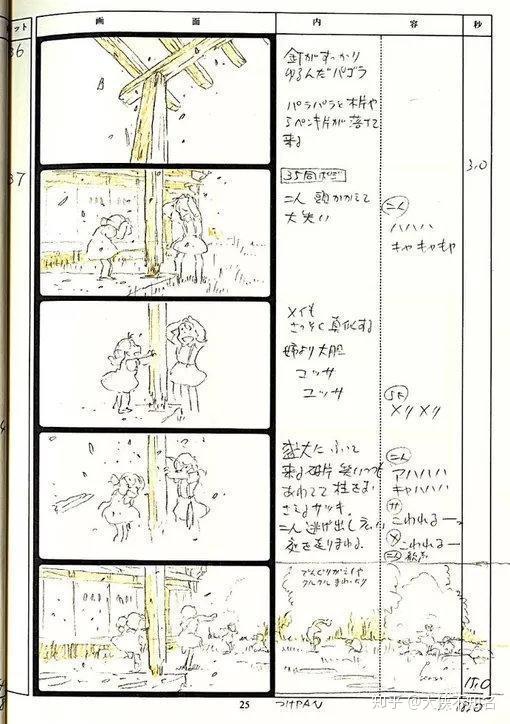 ット
画面
内容
秒
36
釘がすっかり
ゆるんだパゴラ
パラパラと木片や
ペンキ片が落ちて
来る
3,0
37
35同ポジ
二人 頭かかえて
大笑い
二人
ハハハ
キャキャキャ
メイも
さっそく真似する
姉より大胆
ユッサ
ユッサ
SE
メリメリ
盛大にふって
来る破片 笑いつつ
あわてて柱をお
さえるサツキ
二人逃げ出し
二人
アハハハ
キャハハハ
サ
こわれるー
メ
こわれるー
二人
でんぐりがえしや
クルクルまわったり
15,0
25
つけPAN
18,0
知乎